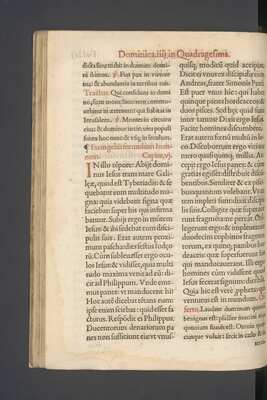 Dominica.iiij in Quadragesima.
dicta sunt mihi in domum domi-
ni ibimus. ℣. Fiat pax in virtute
tua: & abundantia in turribus tuis.
Tractus. Qui confidunt in domi-
no, sicut mons Sion: non commo-
uebitur in æternum qui habitat in
Ierusalem. ℣. Montes in circuitu
eius: & dominus in circuitu populi
sui, ex hoc nunc & vsq; in seculum.
¶ Euangelij secundum Ioan-
nem. Capite. vj.
IN illo tempore: Abijt domi-
nus Iesus trans mare Gali-
leæ, quod est Tyberiadis: & se
quebatur eum multitudo ma-
gna: quia videbant signa quæ
faciebat super his qui infirma-
bantur. Subijt ergo in montem
Iesus: & ibi sedebat cum disci-
pulis suis. Erat autem proxi-
mum pascha dies festus Iudæo-
rū. Cum subleuasset ergo ocu-
los Iesus & vidisset, quia multi
tudo maxima venit ad eū: di-
cit ad Philippum. Vnde eme-
mus panes: vt manducent hi?
Hoc autē dicebat tētans eum:
ipse enim sciebat: quid esset fa
cturus. Respōdit ei Philippus:
Ducentorum denariorum pa-
nes non sufficiunt eis: vt vnus-
quisq; modicū quid accipiat.
Dicit ei vnus ex discipulis eius
Andreas, frater Simonis Petri.
Est puer vnus hic: qui habet
quinque panes hordeaceos &
duos pisces. Sed hæc quid sunt
inter tantos? Dixit ergo Iesus.
Facite homines discumbere.
Erat autem fœnum multū in
loco. Discubuerunt ergo viri: nu-
mero quasi quinque millia. Ac-
cepit ergo Iesus panes: & cum
gratias egisset distribuit discū-
bentibus. Similiter & ex pisci-
bus quantum volebant. Vt au-
tem impleti sunt dixit discipu-
lis suis. Colligite quæ superaue
runt fragmenta: ne pereant. Col-
legerunt ergo: & impleuerunt
duodecim cophinos fragmen-
torum, ex quinq; panibus hor-
deaceis: quæ superfuerunt his
qui manducauerant. Illi ergo
homines cùm vidissent quod
Iesus fecerat signum: dicebāt.
Quia hic est verè propheta: qui
venturus est in mundum.